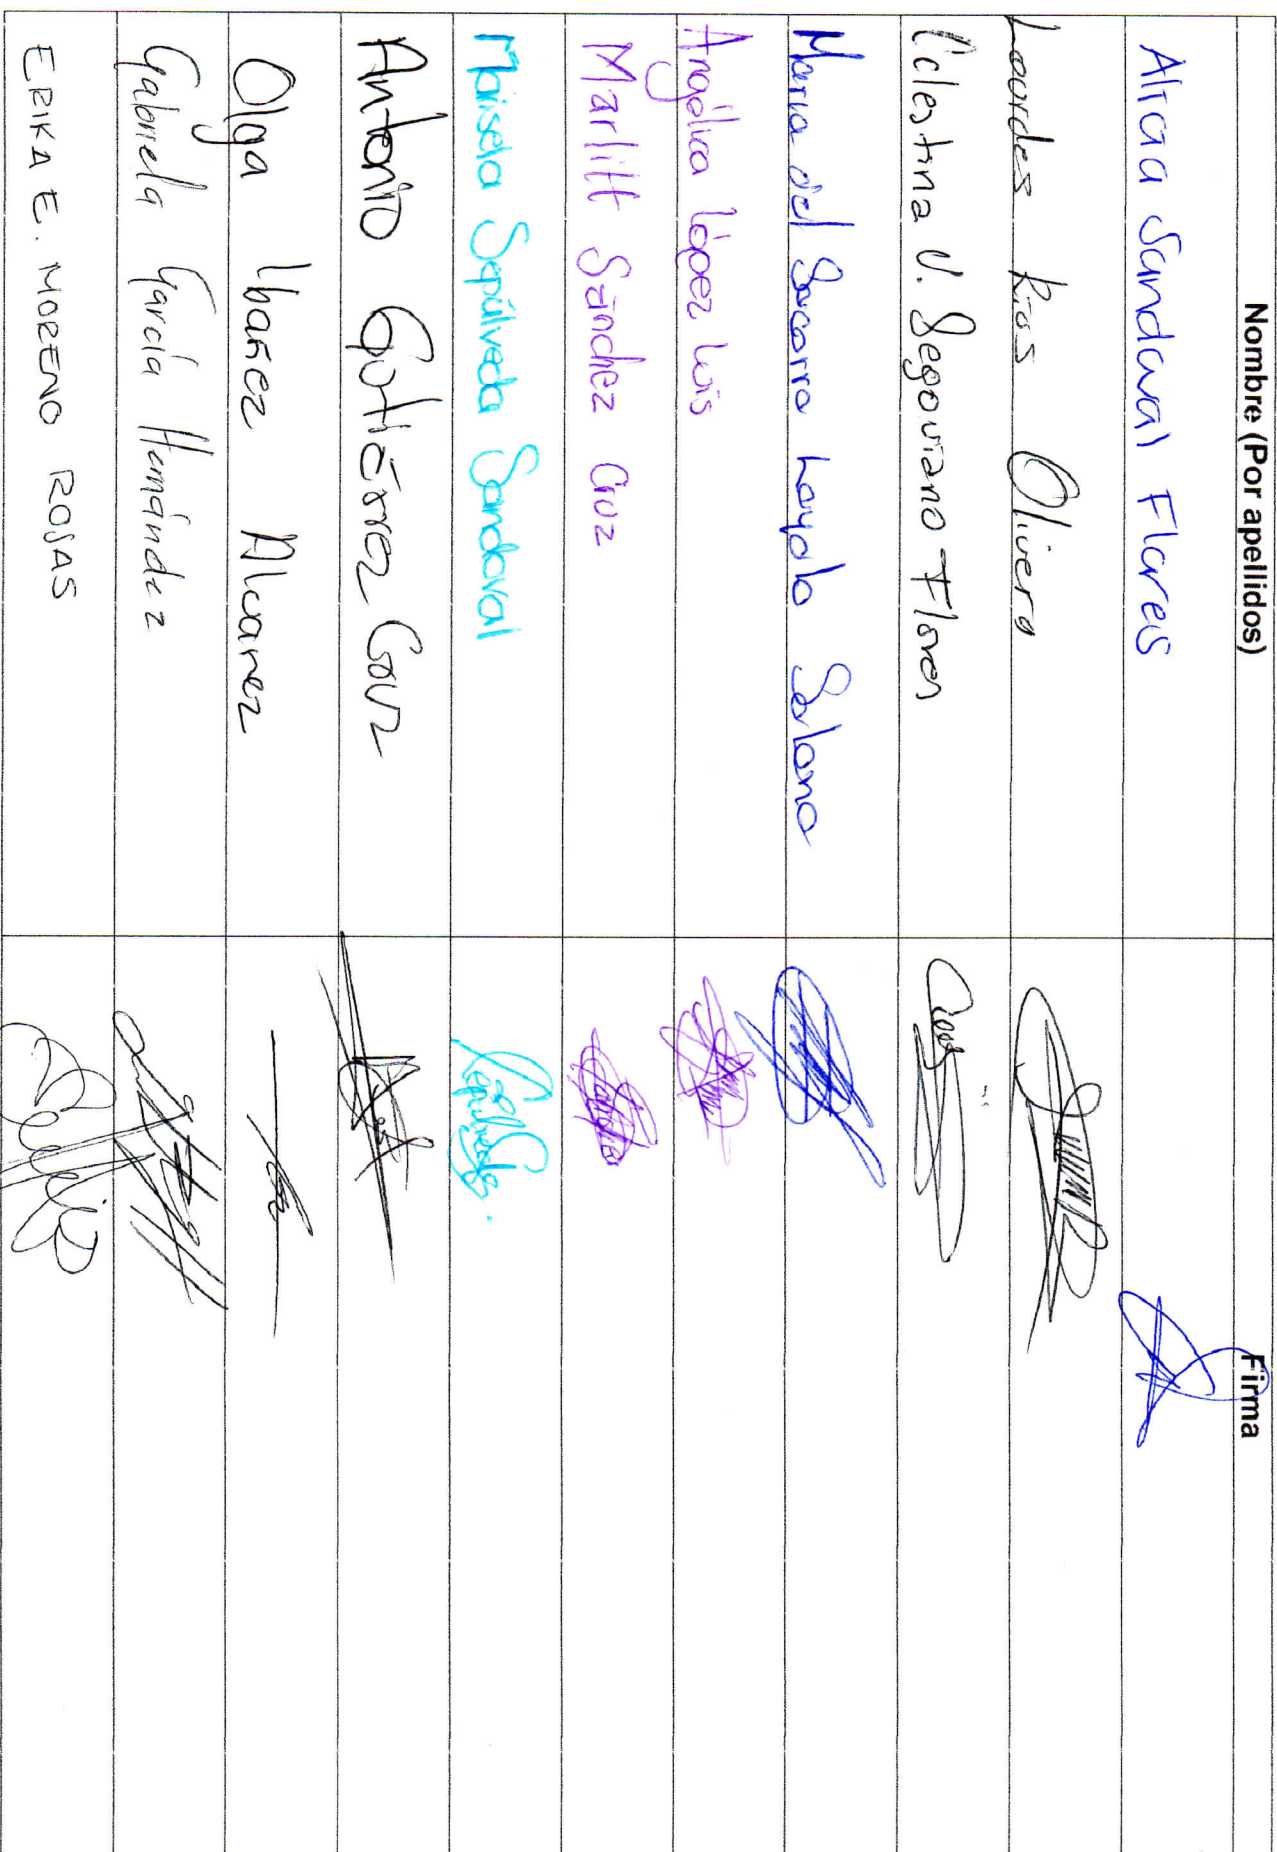 Nombre (Por apellidos) Firma
Sandoval Flores
Lourdes Rios Olivera
Celestina V. Segoviano Flores
Maria del Socorro Loyola Solano
Angélica López Luis
Marlitt Sánchez Cruz
Maisela Sepúlveda Sandoval
Antonio Gutiérrez Cruz
Olga Ibañez Alvarez
Gabriela García Hernández
ERIKA E. MORENO ROSAS